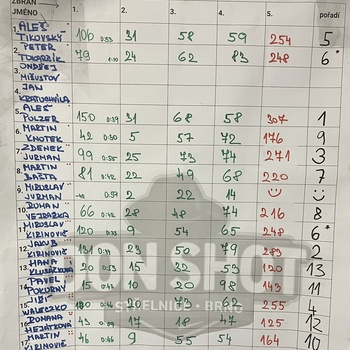 ZBRAŇ → 1. 2. 3. 4. 5. pořadí
JMÉNO
1. ALEŠ TIKOVSKÝ 106 0:53 31 58 59 254 5
2. PETER TOKARBÍK 79 24 62 83 248 6*
3. ONDŘEJ MIŠUSTOV
4. JAN KRATOCHVÍLA
5. ALEŠ POLZER 150 0:39 31 68 58 307 1
6. MARTIN KNOTEK 42 0:50 5 57 72 176 9
7. ZDENEK JURMAN 99 0:55 25 73 74 271 3
8. MARTIN BAŠTA 81 0:42 22 49 68 220 7
9. MIROSLAV JURMAN 0:57 2 22 14
10. ROMAN VEJRAŽKA 66 28 48 74 216 8
11. MIROSLAV KIRINOVIČ 120 0:55 9 54 65 248 6*
12. JAKUB KIRINOVIČ 131 23 50 79 283 2
13. HANA 20 0:53 15 32 53 120 13
14. PAVEL POKORNÝ 15 10 20 98 143 11
15. JIŘÍ 100 0:46 20 73 62 255 4
16. ROMANA VEJRAŽKOVÁ 43 17 18 47 125 12
17. MARTIN KIRINOVIČ 46 0:46 9 55 54 164 10
IRON SHOT
STŘELNICE • BRNO